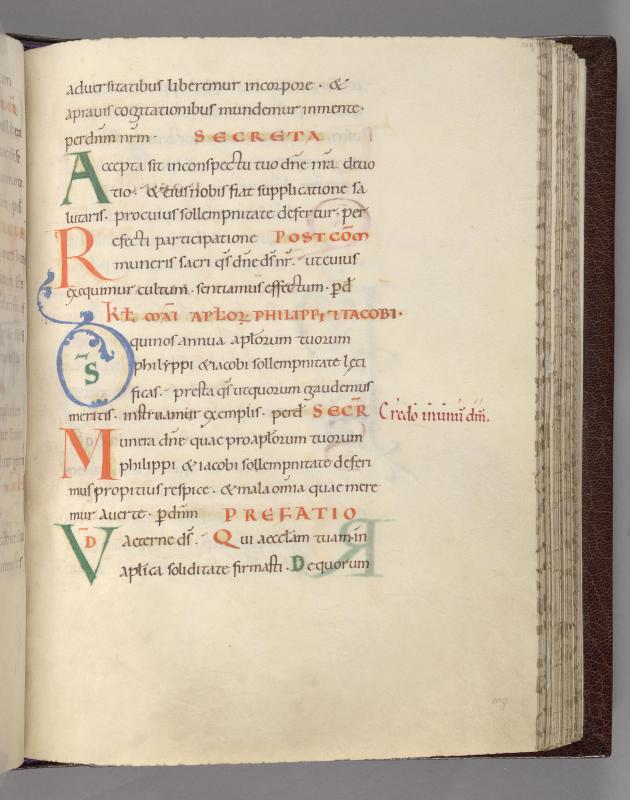 aduersitatibus liberemur incorpore · &
aprauis cogitationibus mundemur inmente·
perdnm nrm · SECRETA
Accepta sit inconspectu tuo dne nra deuo
tio · & eius nobis fiat supplicatione sa
lutaris · procuius sollempnitate defertur · per
Refecti participatione POSTCOM
muneris sacri qs dne ds nr · ut cuius
exequimur cultum · sentiamus effectum · pd
KL MAI APLOR PHILIPPI ET IACOBI ·
DS quinos annua aplorum tuorum
philyppi & iacobi sollempnitate leti
ficas · presta qs utquorum gaudemus
meritis · instruamur exemplis · perd SECR Credo in unum dm.
Munera dne quae proaplorum tuorum
philippi & iacobi sollempnitate deferi
mus propitius respice · & mala omia quae mere
mur auerte · pdnm PREFATIO
VD aeterne ds · Qui aecclam tuam in
aplica soliditate firmasti · Dequorum